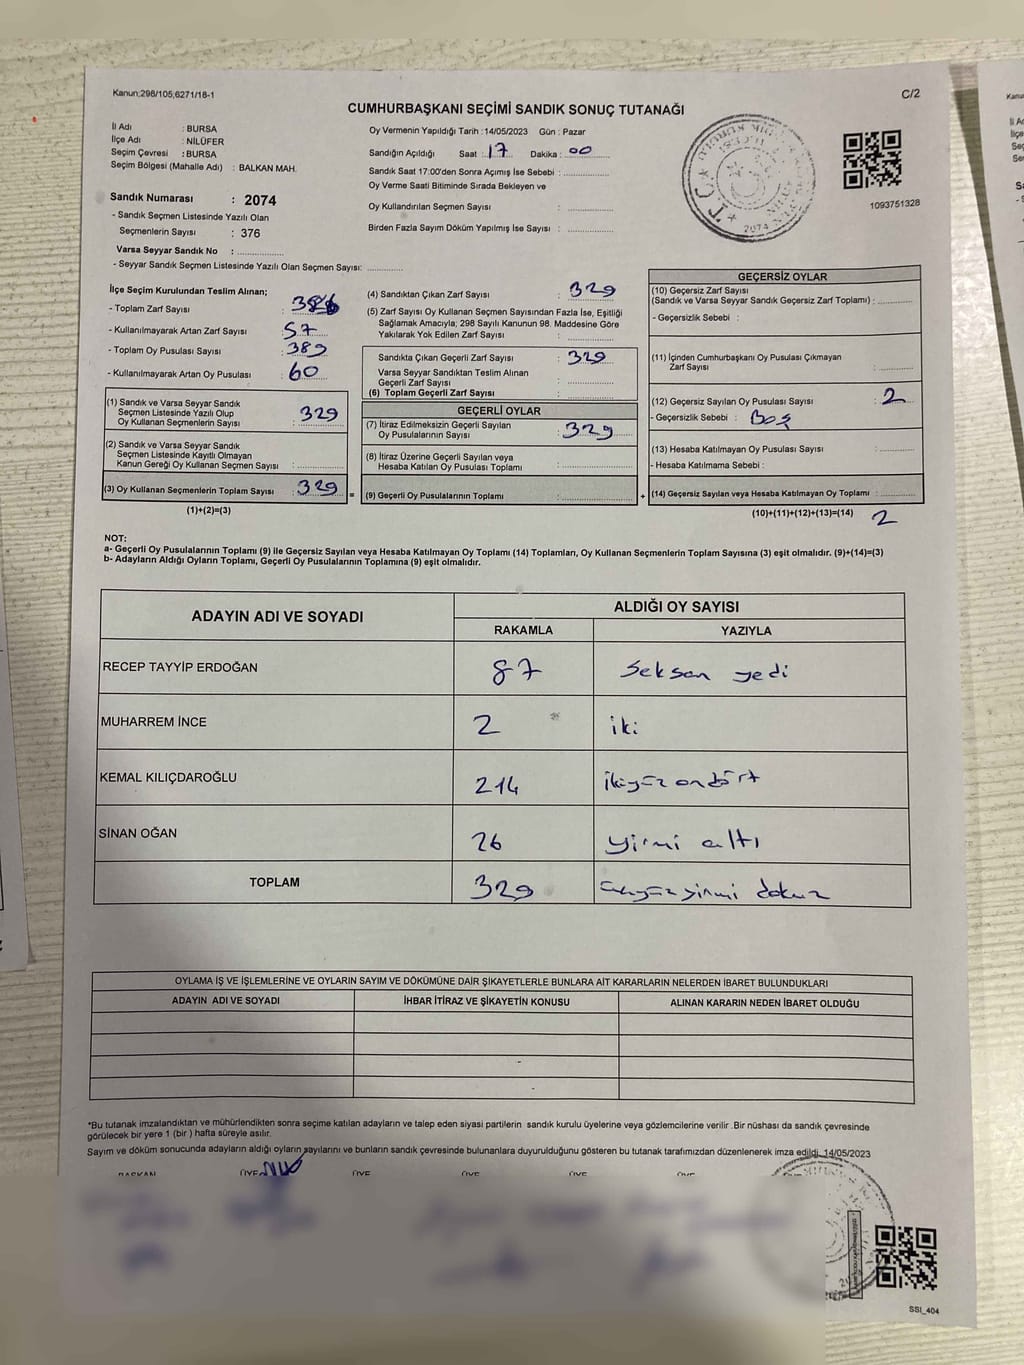 Kanun;298/105,6271/18-1
C/2
CUMHURBAŞKANI SEÇİMİ SANDIK SONUÇ TUTANAĞI
İl Adı : BURSA
İlçe Adı : NİLÜFER
Seçim Çevresi : BURSA
Seçim Bölgesi (Mahalle Adı) : BALKAN MAH.
Sandık Numarası : 2074
- Sandık Seçmen Listesinde Yazılı Olan
Seçmenlerin Sayısı : 376
Varsa Seyyar Sandık No :
- Seyyar Sandık Seçmen Listesinde Yazılı Olan Seçmen Sayısı:
Oy Vermenin Yapıldığı Tarih : 14/05/2023 Gün : Pazar
Sandığın Açıldığı Saat : 17 Dakika : 00
Sandık Saat 17:00'den Sonra Açımış İse Sebebi :
Oy Verme Saati Bitiminde Sırada Bekleyen ve
Oy Kullandırılan Seçmen Sayısı :
Birden Fazla Sayım Döküm Yapılmış İse Sayısı :
T.C.
2074
1093751328
İlçe Seçim Kurulundan Teslim Alınan;
- Toplam Zarf Sayısı :
- Kullanılmayarak Artan Zarf Sayısı : 57
- Toplam Oy Pusulası Sayısı : 389
- Kullanılmayarak Artan Oy Pusulası : 60
(1) Sandık ve Varsa Seyyar Sandık
Seçmen Listesinde Yazılı Olup
Oy Kullanan Seçmenlerin Sayısı : 329
(2) Sandık ve Varsa Seyyar Sandık
Seçmen Listesinde Kayıtlı Olmayan
Kanun Gereği Oy Kullanan Seçmen Sayısı :
(3) Oy Kullanan Seçmenlerin Toplam Sayısı : 329 =
(1)+(2)=(3)
(4) Sandıktan Çıkan Zarf Sayısı : 329
(5) Zarf Sayısı Oy Kullanan Seçmen Sayısından Fazla İse, Eşitliği
Sağlamak Amacıyla; 298 Sayılı Kanunun 98. Maddesine Göre
Yakılarak Yok Edilen Zarf Sayısı :
Sandıkta Çıkan Geçerli Zarf Sayısı : 329
Varsa Seyyar Sandıktan Teslim Alınan
Geçerli Zarf Sayısı :
(6) Toplam Geçerli Zarf Sayısı :
GEÇERLİ OYLAR
(7) İtiraz Edilmeksizin Geçerli Sayılan
Oy Pusulalarının Sayısı : 329
(8) İtiraz Üzerine Geçerli Sayılan veya
Hesaba Katılan Oy Pusulası Toplamı :
(9) Geçerli Oy Pusulalarının Toplamı : +
GEÇERSİZ OYLAR
(10) Geçersiz Zarf Sayısı
(Sandık ve Varsa Seyyar Sandık Geçersiz Zarf Toplamı) :
- Geçersizlik Sebebi :
(11) İçinden Cumhurbaşkanı Oy Pusulası Çıkmayan
Zarf Sayısı :
(12) Geçersiz Sayılan Oy Pusulası Sayısı : 2
- Geçersizlik Sebebi : Boş
(13) Hesaba Katılmayan Oy Pusulası Sayısı :
- Hesaba Katılmama Sebebi :
(14) Geçersiz Sayılan veya Hesaba Katılmayan Oy Toplamı :
(10)+(11)+(12)+(13)=(14) 2
NOT:
a- Geçerli Oy Pusulalarının Toplamı (9) ile Geçersiz Sayılan veya Hesaba Katılmayan Oy Toplamı (14) Toplamları, Oy Kullanan Seçmenlerin Toplam Sayısına (3) eşit olmalıdır. (9)+(14)=(3)
b- Adayların Aldığı Oyların Toplamı, Geçerli Oy Pusulalarının Toplamına (9) eşit olmalıdır.
ADAYIN ADI VE SOYADI
ALDIĞI OY SAYISI
RAKAMLA YAZIYLA
RECEP TAYYİP ERDOĞAN 87 seksen yedi
MUHARREM İNCE 2 iki
KEMAL KILIÇDAROĞLU 214 ikiyüz ondört
SİNAN OĞAN 26 yirmi altı
TOPLAM 329 üçyüz yirmi dokuz
OYLAMA İŞ VE İŞLEMLERİNE VE OYLARIN SAYIM VE DÖKÜMÜNE DAİR ŞİKAYETLERLE BUNLARA AİT KARARLARIN NELERDEN İBARET BULUNDUKLARI
ADAYIN ADI VE SOYADI İHBAR İTİRAZ VE ŞİKAYETİN KONUSU ALINAN KARARIN NEDEN İBARET OLDUĞU
*Bu tutanak imzalandıktan ve mühürlendikten sonra seçime katılan adayların ve talep eden siyasi partilerin sandık kurulu üyelerine veya gözlemcilerine verilir .Bir nüshası da sandık çevresinde
görülecek bir yere 1 (bir ) hafta süreyle asılır.
Sayım ve döküm sonucunda adayların aldığı oyların sayılarını ve bunların sandık çevresinde bulunanlara duyurulduğunu gösteren bu tutanak tarafımızdan düzenlenerek imza edildi. 14/05/2023
BAŞKAN ÜYE ÜYE ÜYE ÜYE ÜYE
SSI_404